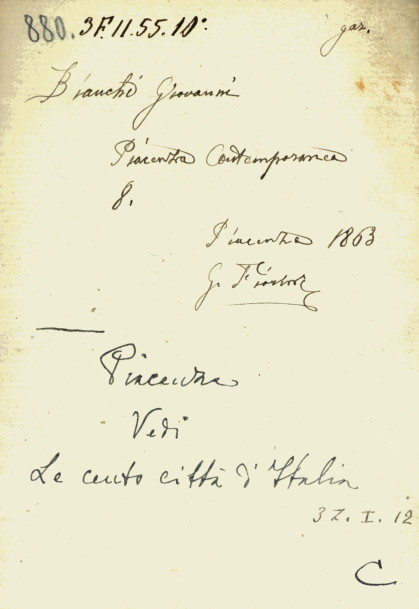 880. 3F. II. 55. 10°.
gaz.
Bianchi Giovanni
Piacenza Contemporanea
8.
Piacenza 1863
G.
Piacenza
Vedi
Le cento città d'Italia
3 Z. I. 12
C